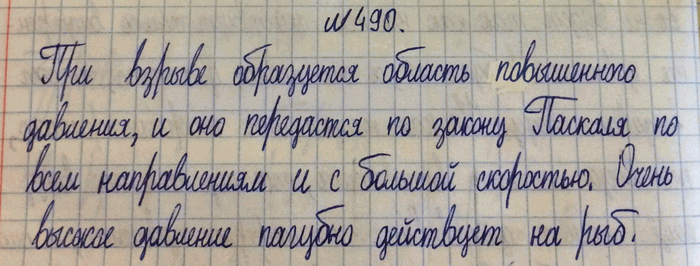 №490.
При взрыве образуется область повышенного
давления, и оно передастся по закону Паскаля по
всем направлениям и с большой скоростью. Очень
высокое давление пагубно действует на рыб.